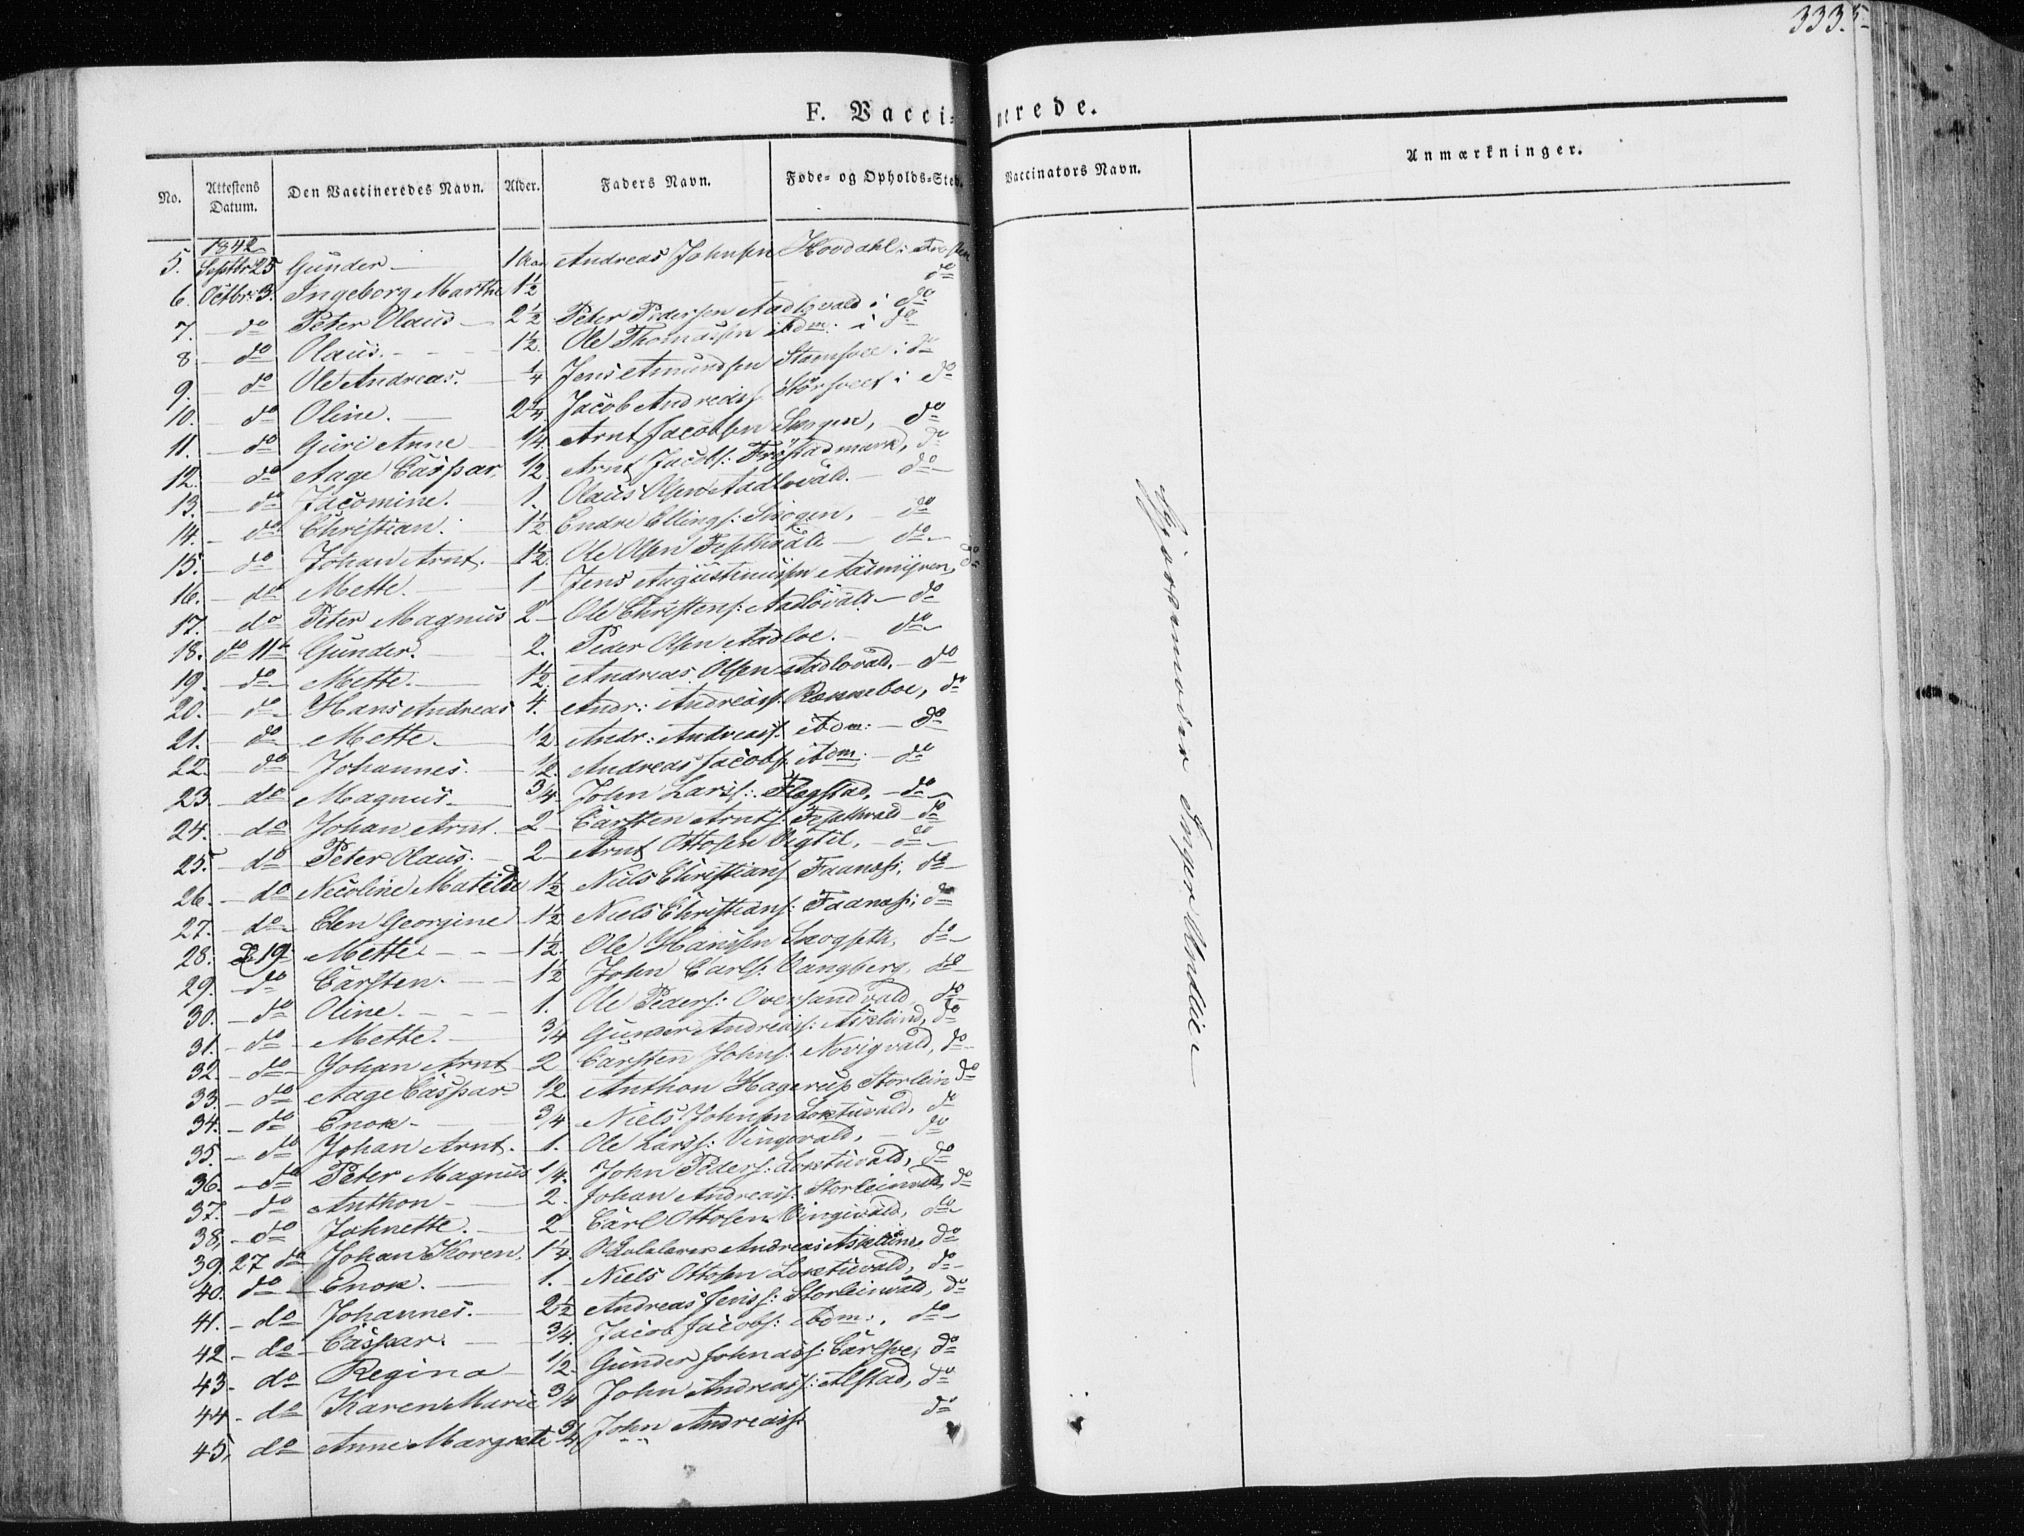 333.
F. Vaccinerede.
No. Attestens Datum. Den Vaccineredes Navn. Alder. Faders Navn. Føde- og Opholds-Sted. Vaccinators Navn. Anmærkninger.
1842
5. Septbr 25 Günder — 1 Aar Andreas Johnsen Hovdahl i
6. Octbr: 3. Ingeborg Marthe 1½ do
7. — do Peter Olaus — 2½ Peter Pedersen Aadlovald i do
8 — do Olaus. — 1½. Ole Thomassen ibdm: i do
9. — do Ole Andreas. — ¼ Jens Amundsen i do
10. — do Oline. — 2¼ Jacob Andreass: i do
11. — do Guri Anne ¼. Arnt Jacobsen Skogen, do
12. — do Aage Caspar. ½. Arnt Jacobs: do
13. — do Jacomine. — 1. Olaus Olsen Aadlovald. — do
14. — do Christian. 1½ Endre Ellings: Skogen, — do
15. — do Johan Arnt. — 1½. Ole Olsen — do
16. — do Mette. — 1 — Jens Augustinussen Aasmyren, do
17. — do Peter Magnus 2 — Ole Christens: Aadlovald — do
18. do 11te Günder. — 2. Peder Olsen Aadloe. — do
19. — do — Mette. — 1½ Andreas Olsen Aadlovald. — do
20. — do — Hans Andreas 4. Andr: Andreass: do
21. — do — Mette. — ½ Andr: Andreass: ibdm: — do
22. — do — Johannes. — ½. Andreas Jacobs: ibdm: — do
23. — do — Magnus. — ¾. John Larss: Flegstad, — do
24. — do Johan Arnt. — 2 — Carsten Arnts: — do
25. — do Peter Olaus. — 2 — Arnt Ottosen Vigtil, — do
26. — do Nicoline Matilde 1½ Niels Christians: do
27. — do — Elen Georgine 1½ Niels Christians: do
28. 19 Mette — — 1½. Ole Hansen do
29. — do Carsten. — 1½ John Carls: Vangberg, do
30. — do Oline. — — 1. Ole Peders: Oversandvald, do
31. — do — Mette. — ¾ Günder Andreass: Asklund, do
32. — do — Johan Arnt 2 Carsten Johns: Novigvald, do
33. — do — Aage Caspar ½ Anthon Hagerup Storlein do
34. — do — Enok — ¾ Niels Johnsen Loxtuvald, do
35. — do Johan Arnt. 1. Ole Larss: Vingevald, — do
36. — do Peter Magnus ¼. John Peders: Loxtuvald, do
37. — do Anthon — 2. Johan Andreass: Storleinvald, do
38, — do Johnette. — 2 Carl Ottosen Vingevald, do
39. 27 do Johan Koren. 1¼. Andreas Asklund do
40. do Enok. — 1. — Niels Ottosen Loxtuvald, do
41. — do Johannes. — 2½ Andreas Jenss: Storleinvald, do
42 — do — Caspar. — ¾. Jacob Jacobs: ibdm:, do
43 — do Regina — ½. Günder Johnass: do
44 — do Karen Marie ¾ John Andreass: Alstad, do
45, do Anne Margrete ¾ John Andreass: do
Gjordemoder Inger Undlie